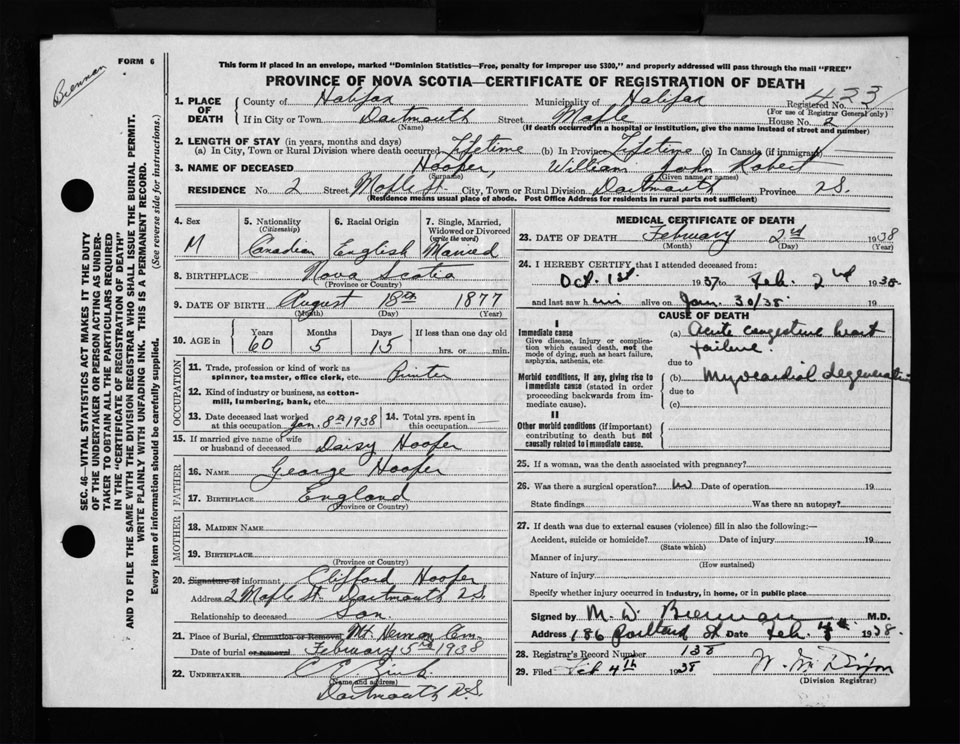 Brennan
FORM 6
This form if placed in an envelope, marked "Dominion Statistics—Free, penalty for improper use $300," and properly addressed will pass through the mail "FREE"
PROVINCE OF NOVA SCOTIA—CERTIFICATE OF REGISTRATION OF DEATH
SEC. 46—VITAL STATISTICS ACT MAKES IT THE DUTY
OF THE UNDERTAKER OR PERSON ACTING AS UNDER-
TAKER TO OBTAIN ALL THE PARTICULARS REQUIRED
IN THE "CERTIFICATE OF REGISTRATION OF DEATH"
AND TO FILE THE SAME WITH THE DIVISION REGISTRAR WHO SHALL ISSUE THE BURIAL PERMIT.
WRITE PLAINLY WITH UNFADING INK. THIS IS A PERMANENT RECORD.
Every item of information should be carefully supplied. (See reverse side for instructions.)
1. PLACE OF DEATH
County of Halifax Municipality of Halifax Registered No. 423
(For use of Registrar General only)
If in City or Town Dartmouth Street Maple House No. 2
(Name) (If death occurred in a hospital or institution, give the name instead of street and number)
2. LENGTH OF STAY (in years, months and days)
(a) In City, Town or Rural Division where death occurred Lifetime (b) In Province Lifetime (c) In Canada (if immigrant)
3. NAME OF DECEASED Hooper, William John Robert
(Surname) (Given name or names)
RESIDENCE No. 2 Street Maple St. City, Town or Rural Division Dartmouth Province N.S.
(Residence means usual place of abode. Post Office Address for residents in rural parts not sufficient)
4. Sex
M
5. Nationality
(Citizenship)
Canadian
6. Racial Origin
English
7. Single, Married,
Widowed or Divorced
(write the word)
Married
8. BIRTHPLACE Nova Scotia
(Province or Country)
9. DATE OF BIRTH August 18th 1877
(Month) (Day) (Year)
10. AGE in
Years Months Days If less than one day old
60 5 15 hrs. or min.
OCCUPATION
11. Trade, profession or kind of work as
spinner, teamster, office clerk, etc. Printer
12. Kind of industry or business, as cotton-
mill, lumbering, bank, etc.
13. Date deceased last worked
at this occupation Jan. 8th 1938
14. Total yrs. spent in
this occupation
15. If married give name of wife
or husband of deceased Daisy Hooper
FATHER
16. NAME George Hooper
17. BIRTHPLACE England
(Province or Country)
MOTHER
18. MAIDEN NAME
19. BIRTHPLACE
(Province or Country)
20. Signature of informant Clifford Hooper
Address 2 Maple St. Dartmouth N.S.
Relationship to deceased Son
21. Place of Burial, Cremation or Removal Mt. Hermon Cem.
Date of burial or removal February 5th 1938
22. UNDERTAKER
(Name and address)
Dartmouth N.S.
MEDICAL CERTIFICATE OF DEATH
23. DATE OF DEATH February 2nd 1938
(Month) (Day) (Year)
24. I HEREBY CERTIFY that I attended deceased from:
Oct. 1st 1937 to Feb. 2nd 1938
and last saw him alive on Jan. 30/38 19
CAUSE OF DEATH
I
Immediate cause
Give disease, injury or compli-
cation which caused death, not the
mode of dying, such as heart failure,
asphyxia, asthenia, etc.
(a) Acute congestive heart
failure.
due to
Morbid conditions, if any, giving rise to
immediate cause (stated in order
proceeding backwards from im-
mediate cause).
(b) Myocardial degeneration
due to
(c)
II
Other morbid conditions (if important)
contributing to death but not
causally related to immediate cause.
25. If a woman, was the death associated with pregnancy?
26. Was there a surgical operation? no Date of operation 19
State findings Was there an autopsy?
27. If death was due to external causes (violence) fill in also the following:—
Accident, suicide or homicide? Date of injury 19
(State which)
Manner of injury
(How sustained)
Nature of injury
Specify whether injury occurred in industry, in home, or in public place
Signed by M. D. Brennan M.D.
Address 186 Portland St Date Feb. 1938.
28. Registrar's Record Number 138
29. Filed Feb 4th 1938
(Division Registrar)